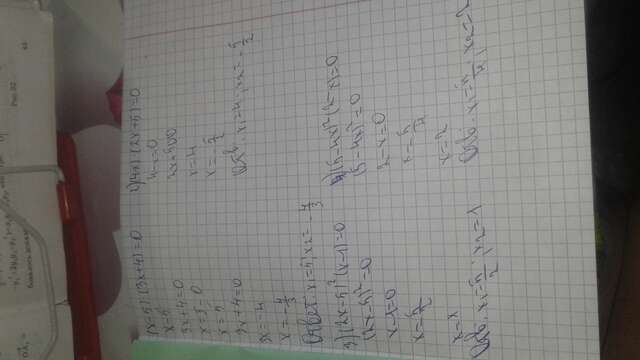 (x-5)·(3x+4)=0
x=5
3x+4=0
x=5-0
x=5
3x+4=0
3x=-4
x=-4/3
Ответ: x₁=5; x₂=-4/3
2) (4-x)·(2x+5)=0
4-x=0
x=4
x=-5/2
Отв. x₁=4; x₂=-5/2
3) (2x-5)²(x-1)=0
(2x-5)²=0
x-1=0
x=5/2
x=1
Отв. x₁=5/2; x₂=1
4) (5-4x)²(2-x)=0
(5-4x)²=0
2-x=0
x=5/4
x=2
Отв. x₁=5/4; x₂=2